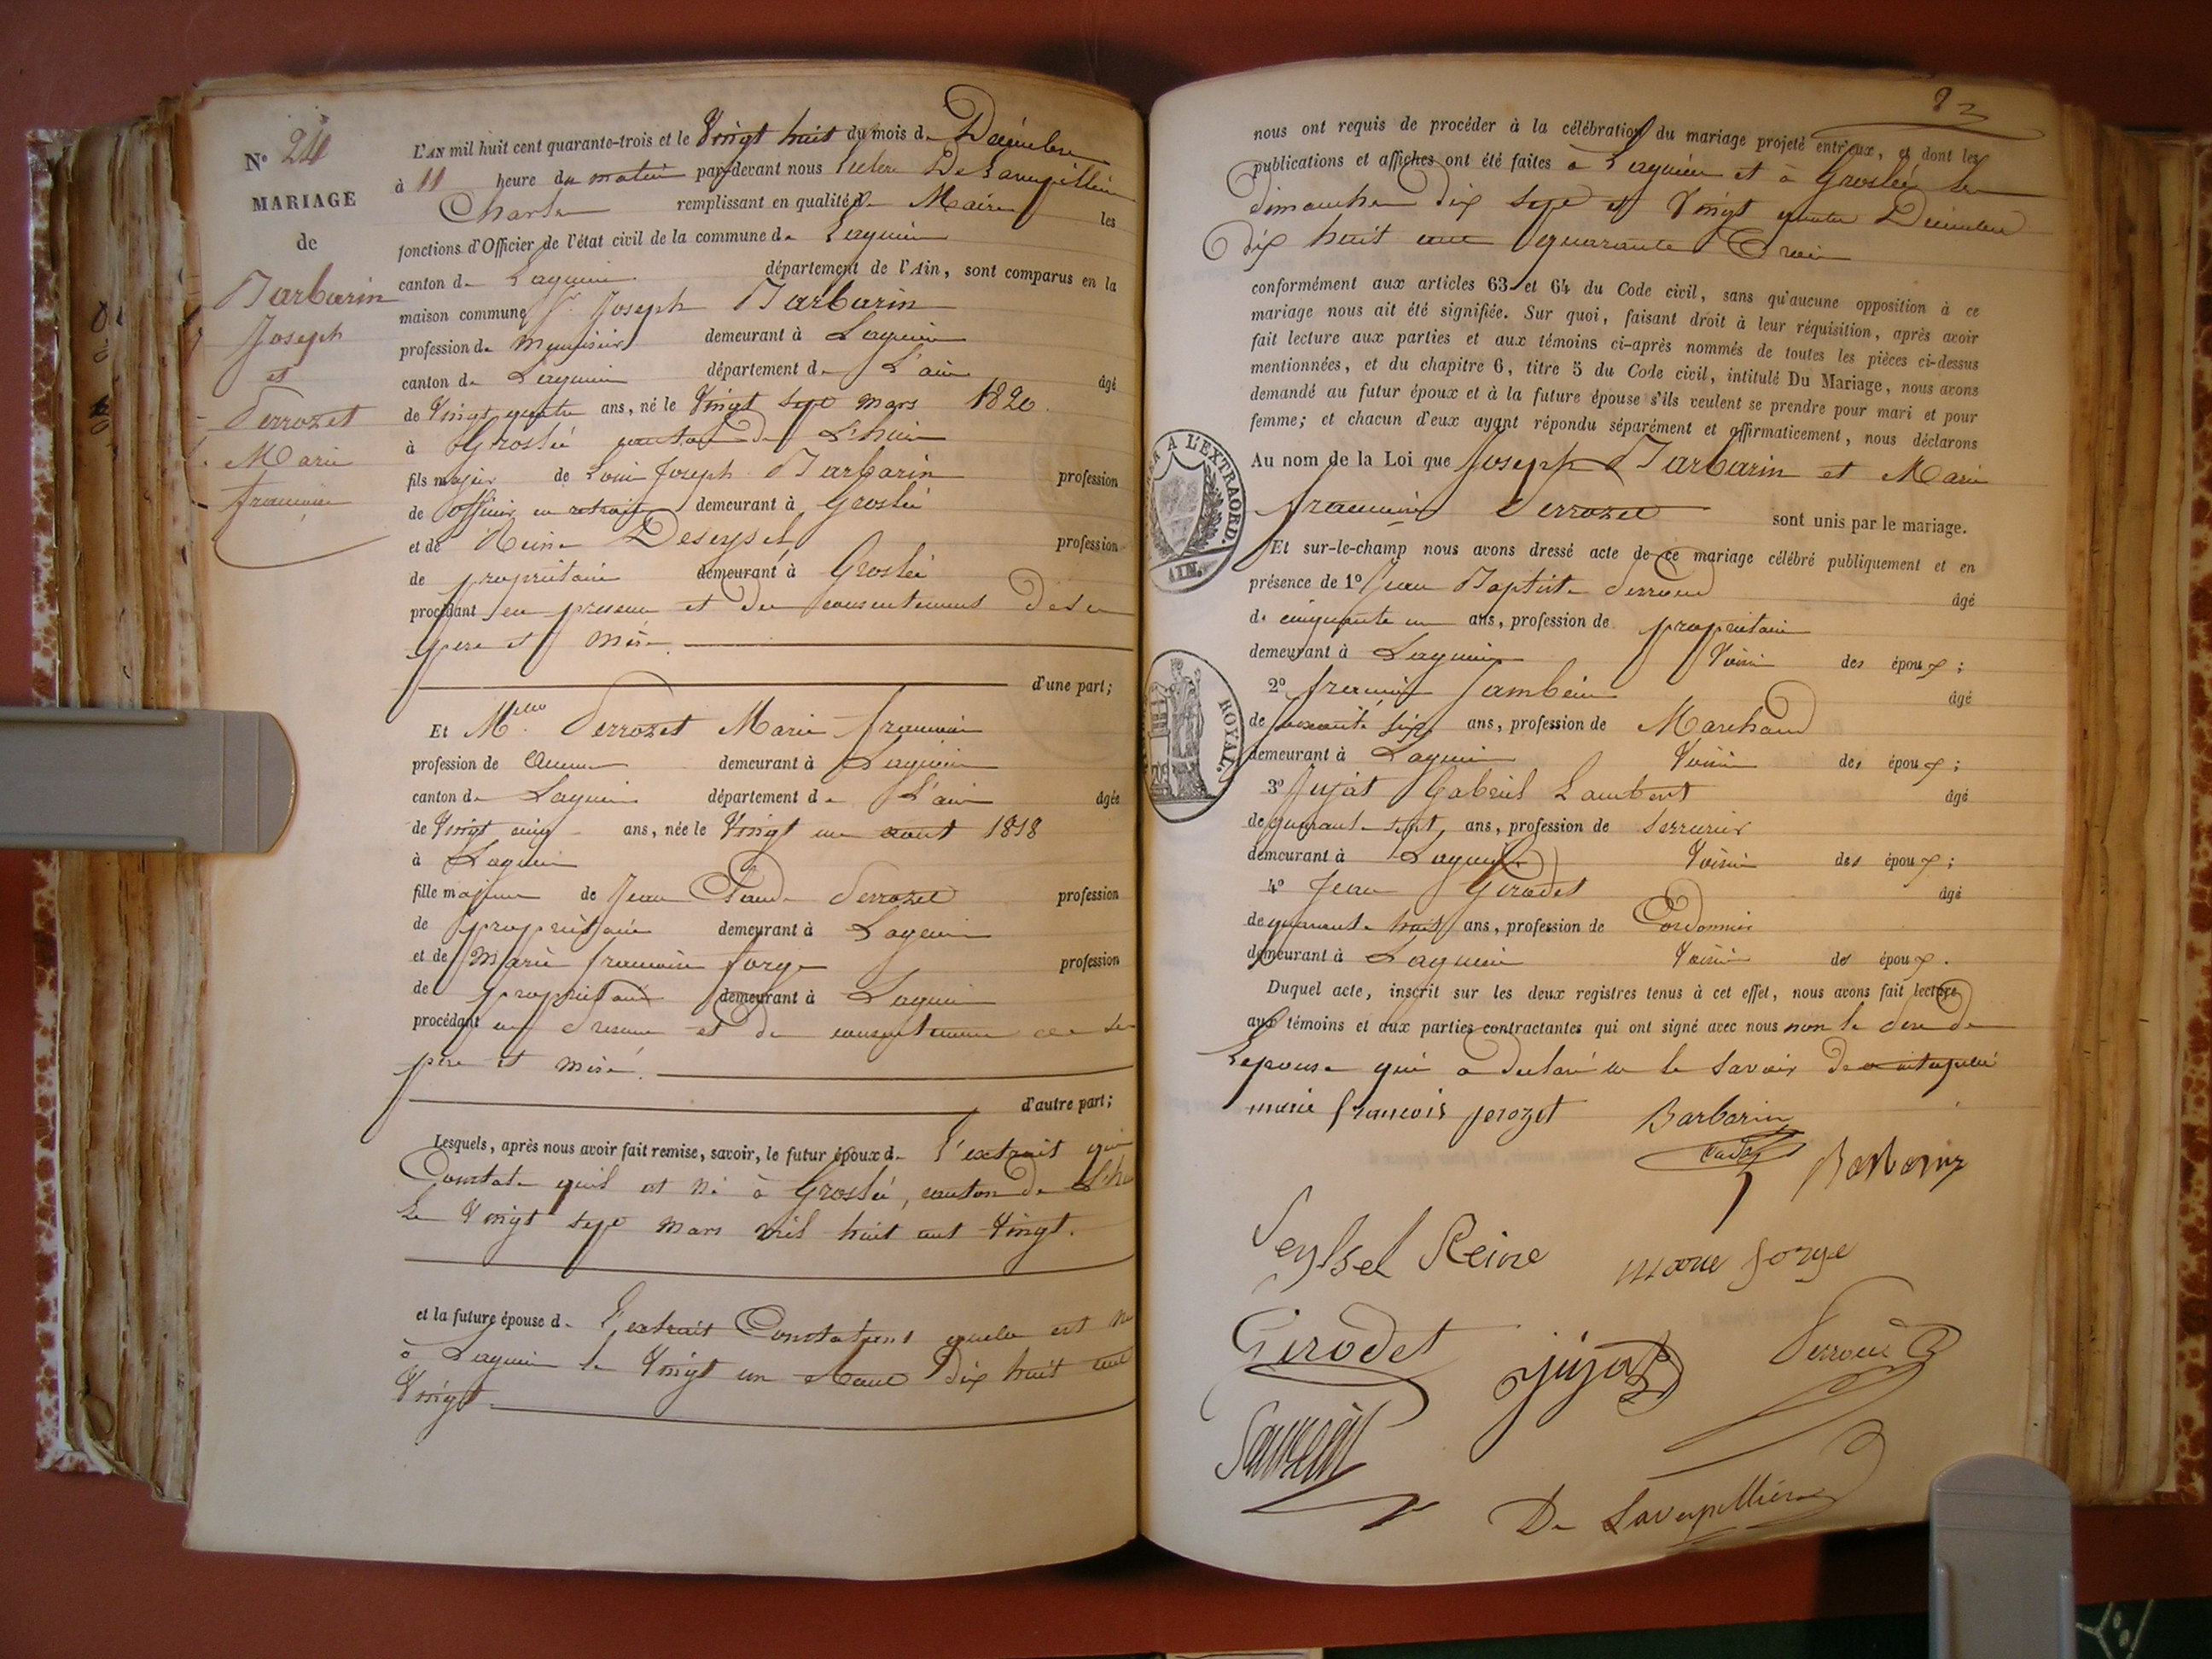 N° 24
MARIAGE
de
Barbarin
Joseph
et
Perrozet
Marie
francoise
L'AN mil huit cent quarante-trois et le Vingt huit du mois de Décembre
à 11 heure du matin par-devant nous De Lavepillière
Charles remplissant en qualité de Maire les
fonctions d'Officier de l'état civil de la commune de Lagnieu
canton de Lagnieu département de l'Ain, sont comparus en la
maison commune Sr Joseph Barbarin
profession de Menuisier demeurant à Lagnieu
canton de Lagnieu département de L'ain âgé
de Vingt quatre ans, né le Vingt sept mars 1820
à Groslée canton de L'huis
fils majeur de Louis Joseph Barbarin profession
de officier en retraite demeurant à Groslée
et de Reine Deseyssel profession
de propriétaire demeurant à Groslée
procédant en presence et du consentement de se
pere et mère
d'une part;
Et Melle Perrozet Marie francoise
profession de aucune demeurant à Lagnieu
canton de Lagnieu département de L'ain âgée
de Vingt cinq ans, née le Vingt un aout 1818
à Lagnieu
fille majeure de Jean Claude Perrozet profession
de propriétaire demeurant à Lagnieu
et de Marie francoise forge profession
de propriétaire demeurant à Lagnieu
procédant en presence et du consentement de se
père et mère
d'autre part;
Lesquels, après nous avoir fait remise, savoir, le futur époux de l'extrait qui
Constate quil est né à Groslée, canton de L'hui
le Vingt sept mars mil huit cent Vingt.
et la future épouse de l'extrait Constatant quelle est né
à Lagnieu le Vingt un Aout dix huit cent
Vingt
23
nous ont requis de procéder à la célébration du mariage projeté entr'eux, et dont les
publications et affiches ont été faites à Lagnieu et à Groslée le
dimanche dix sept et Vingt quatre Décembre
dix huit cent quarante Trois
conformément aux articles 63 et 64 du Code civil, sans qu'aucune opposition à ce
mariage nous ait été signifiée. Sur quoi, faisant droit à leur réquisition, après avoir
fait lecture aux parties et aux témoins ci-après nommés de toutes les pièces ci-dessus
mentionnées, et du chapitre 6, titre 5 du Code civil, intitulé Du Mariage, nous avons
demandé au futur époux et à la future épouse s'ils veulent se prendre pour mari et pour
femme; et chacun d'eux ayant répondu séparément et affirmaticement, nous déclarons
Au nom de la Loi que Joseph Barbarin et Marie
francoise Perrozet sont unis par le mariage.
Et sur-le-champ nous avons dressé acte de ce mariage célébré publiquement et en
présence de 1° Jean Baptiste Perroud âgé
de cinquante un ans, profession de propriétaire
demeurant à Lagnieu Voisin des époux;
2° francois Jambein âgé
de soixante six ans, profession de Marchand
demeurant à Lagnieu Voisin des époux;
3° Jujat Gabriel Lambert âgé
de quarante sept ans, profession de Serrurier
demeurant à Lagnieu Voisin des époux;
4° Jean Girodet âgé
de quarante huit ans, profession de Cordonnier
demeurant à Lagnieu Voisin des époux.
Duquel acte, inscrit sur les deux registres tenus à cet effet, nous avons fait lecture
aux témoins et aux parties contractantes qui ont signé avec nous non le pere de
Lepouse qui a declaré ne le savoir de ce interpellé
marie francois perozet Barbarin
Barbarin
Seyssel Reine marie forge
Girodet Jujat Perroud
De Lavepillière
A L'EXTRAORD.
AIN.
ROYAL.